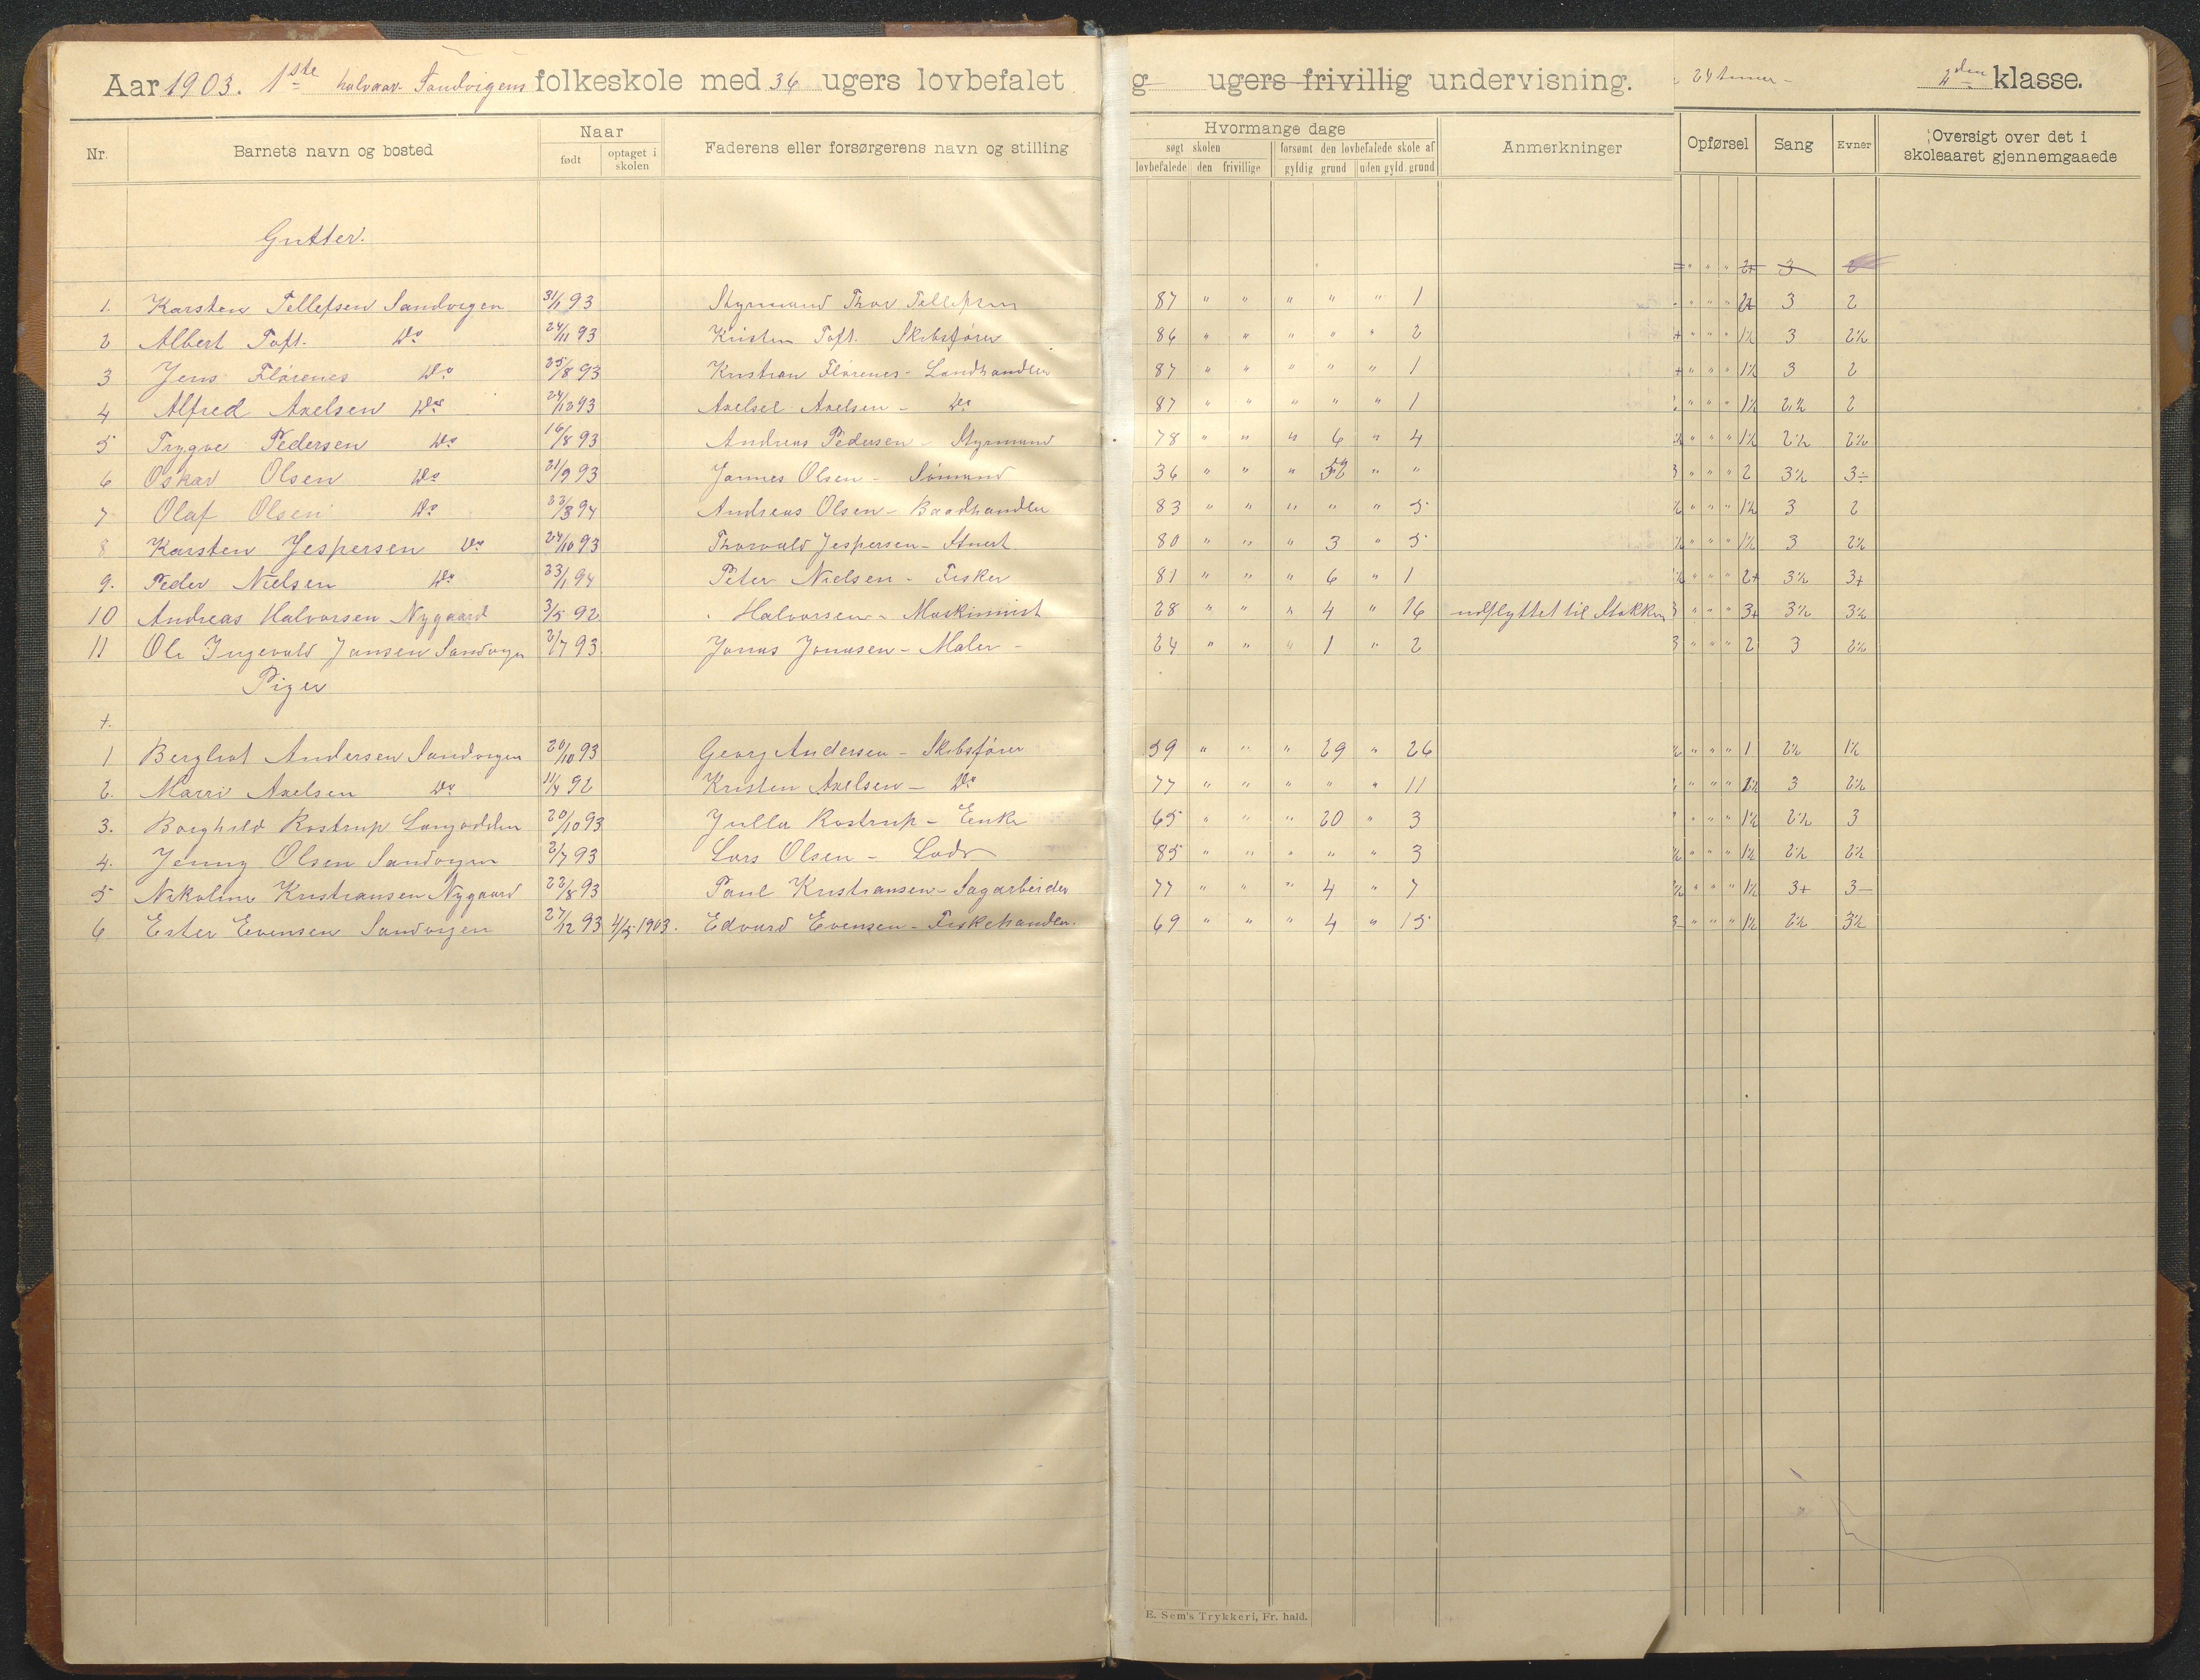 Aar 1903. 1ste halvaar Sandvigens folkeskole med 36 ugers lovbefalet g ugers frivillig undervisning. 24 timer - 2den klasse.
Nr. Barnets navn og bosted Naar født optaget i skolen Faderens eller forsørgerens navn og stilling Hvormange dage søgt skolen lovbefalede den frivillige forsømt den lovbefalede skole af gyldig grund uden gyld. grund Anmerkninger Opførsel Sang Evner Oversigt over det i skoleaaret gjennemgaaede
Gutter.
" " " 2+ 3
1. Karsten Tellefsen Sandvigen 31/1 93 Styrmand Thor Tellefsen 87 " " " " " 1 " " " 2+ 3 2
2 Albert Toft. Do 24/11 93 Kristen Toft. Skibsfører 86 " " " " " 2 + " " " 1½ 3 2½
3 Jens Flørenes Do 25/8 93 Kristian Flørenes - Landhandler 87 " " " " " 1 + " " " 1½ 3 2
4 Alfred Axelsen Do 24/12 93 Axelsel Axelsen - Do 87 " " " " " 1 " " " 1½ 2½ 2
5 Trygve Pedersen Do 16/8 93 Andreas Pedersen - Styrmand 78 " " " 6 " 4 " " " 1½ 2½ 2½
6 Oskar Olsen Do 21/9 93 Jannes Olsen - Sømand 36 " " " 52 " " 3 " " " 2 3½ 3÷
7 Olaf Olsen Do 22/3 94 Andreas Olsen - Baadhandler 83 " " " " " 5 ½ " " " 1½ 3 2
8 Karsten Jespersen Do 24/10 93 Thorvald Jespersen - Stuert 80 " " " 3 " 5 ½ " " " 1½ 3 2½
9. Peder Nielsen Do 23/1 94 Peter Nielsen - Fisker 81 " " " 6 " 1 ½ " " " 2+ 3½ 3+
10 Andreas Halvorsen Nygaard 3/5 92 Halvorsen - Maskinmist 28 " " " 4 " 16 udflyttet til Stokken 3 " " " 3+ 3½ 3½
11 Ole Ingevald Jansen Sandvigen 2/7 93 Jonas Jonasen - Maler - 24 " " " 1 " 2 3 " " " 2 3 2½
Piger
+.
1 Bergliot Andersen Sandvigen 20/10 93 Georg Andersen - Skibsfører 39 " " " 29 " 26 ½ " " " 1 2½ 1½
2. Marri Axelsen Do 11/4 92 Kristen Axelsen - Do 77 " " " " " 11 " " " 2½ 3 2½
3. Borghild Rostrup Langodden 20/10 93 Julla Rostrup - Enke 65 " " " 20 " 3 " " " 1½ 2½ 3
4. Jenny Olsen Sandvigen 2/7 93 Lars Olsen - Lods 85 " " " " " 3 ½ " " " 1½ 2½ 2½
5 Nikoline Kristiansen Nygaard 22/8 93 Paul Kristiansen - Sagarbeider 77 " " " 4 " 7 ½ " " " 1½ 3+ 3-
6 Ester Evensen Sandvigen 27/12 93 4/5 1903. Edvard Evensen - Fiskehandler. 69 " " " 4 " 15 3 " " " 1½ 2½ 3½
E. Sem's Trykkeri, Fr. hald.